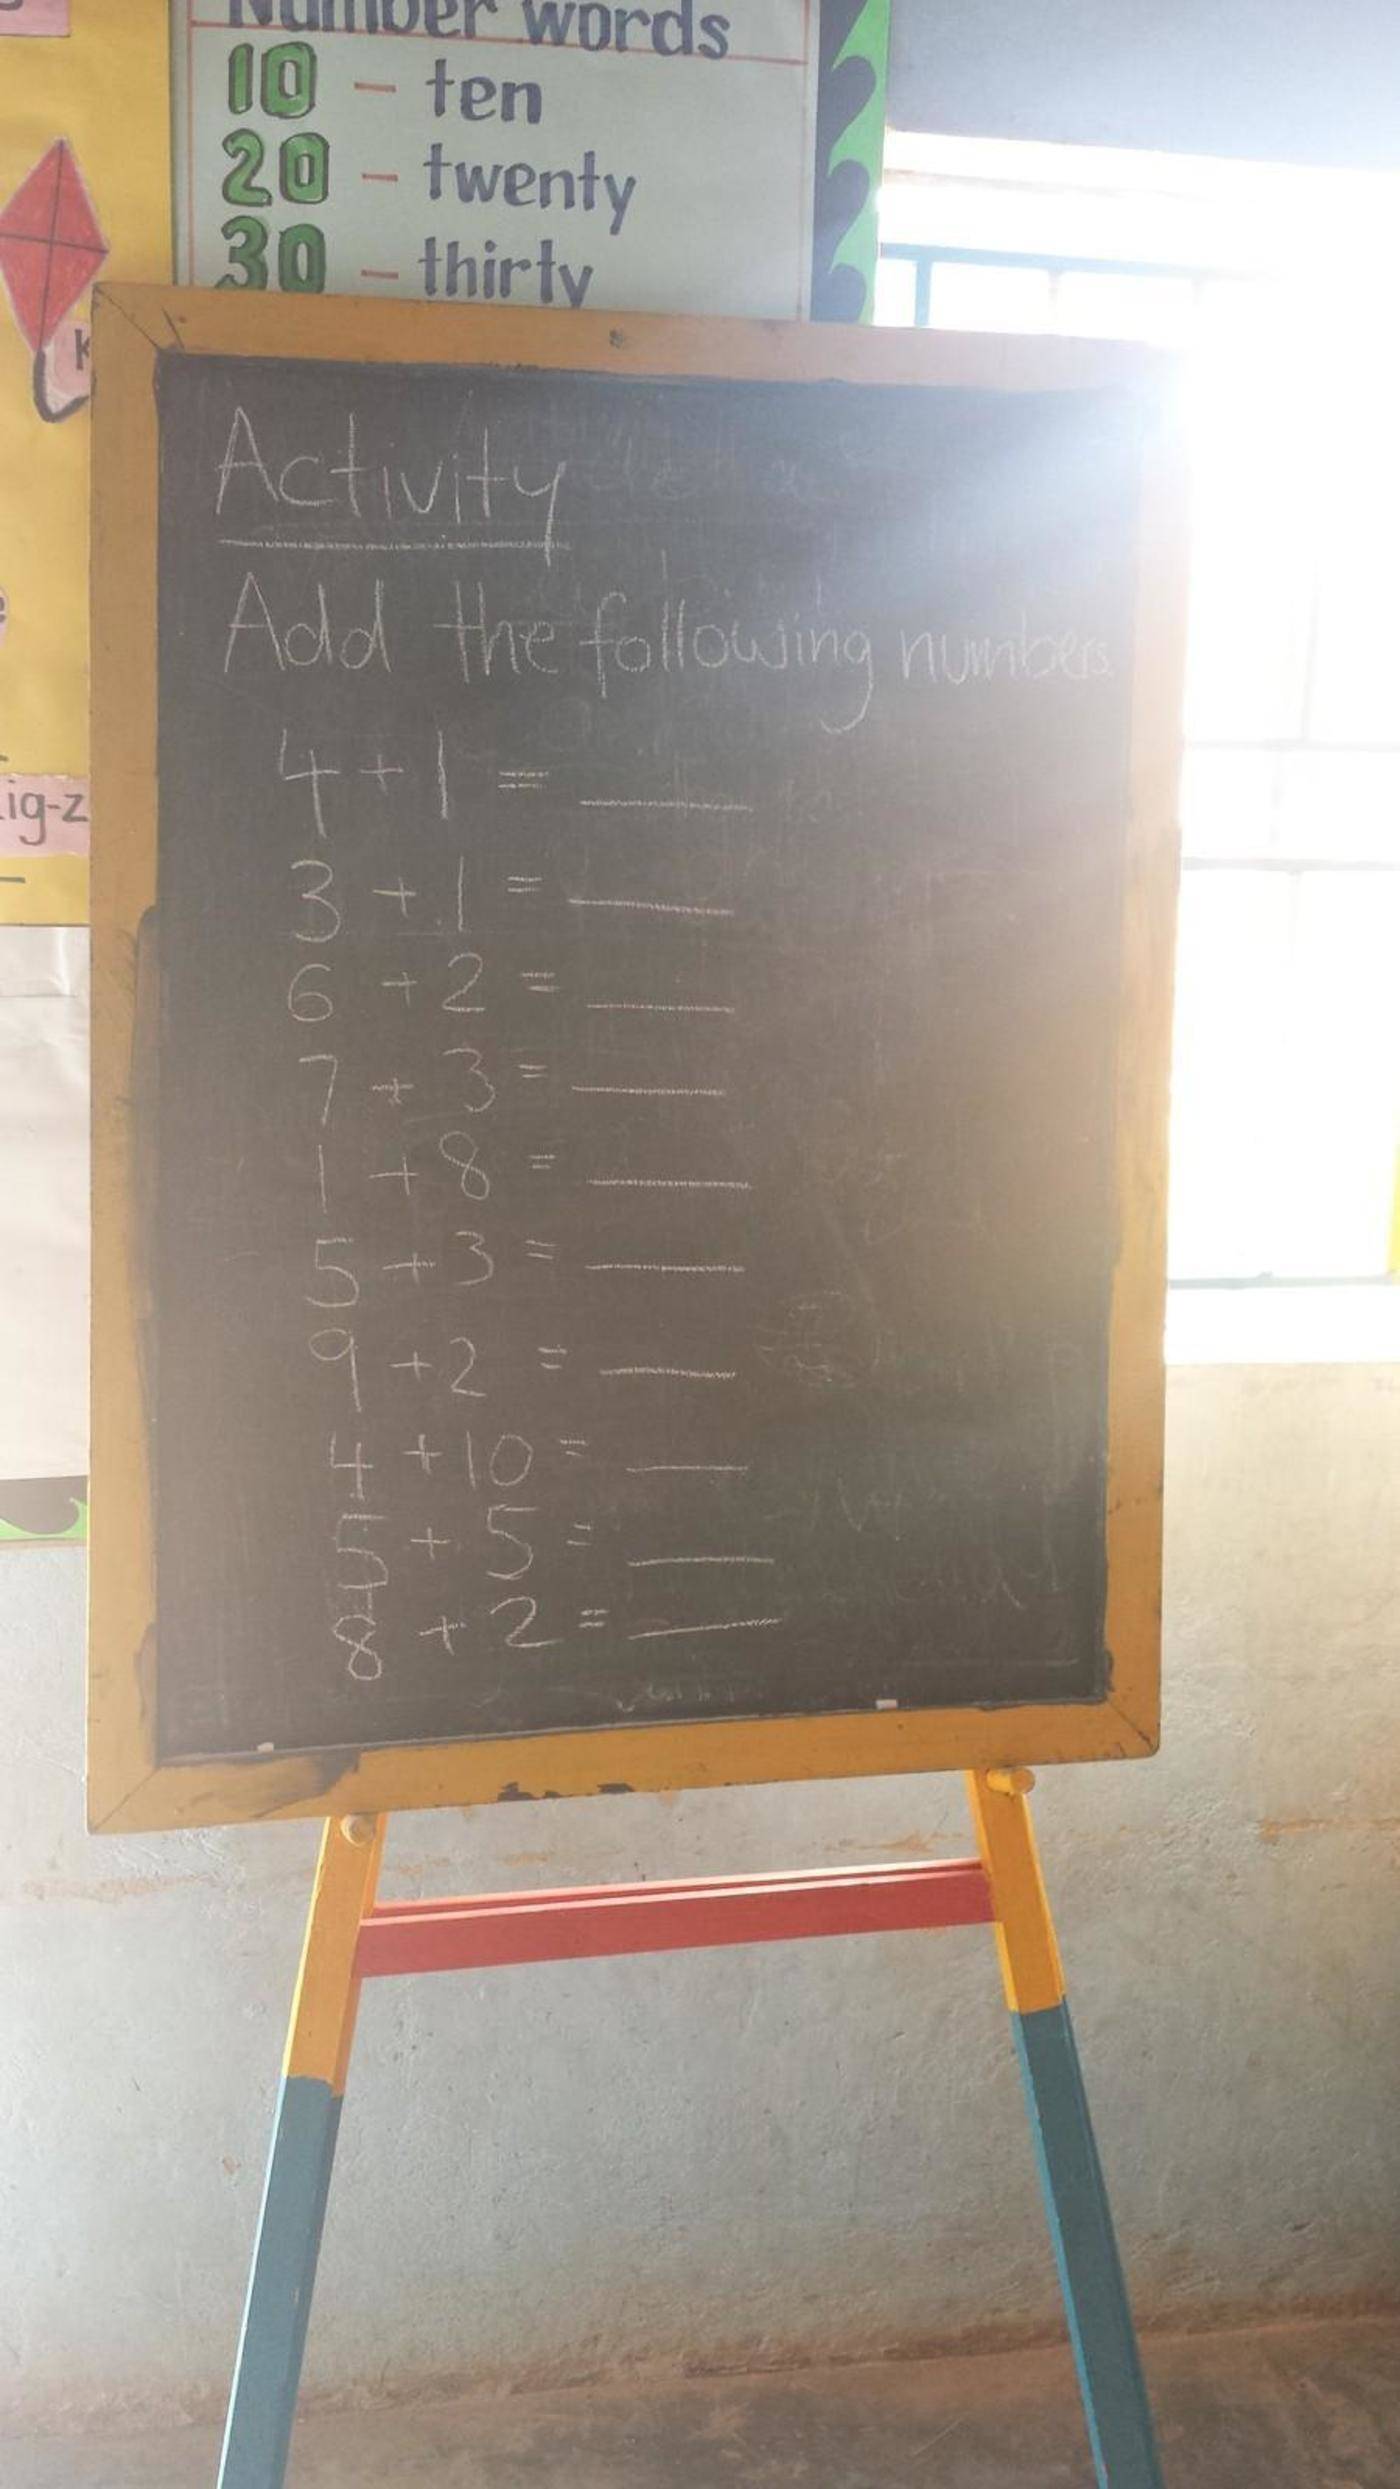 Number words
10 - ten
20 - twenty
30 - thirty
K
ig-z
Activity
Add the following numbers.
4 + 1 = ____
3 + 1 = ____
6 + 2 = ____
7 + 3 = ____
1 + 8 = ____
5 + 3 = ____
9 + 2 = ____
4 + 10 = ____
5 + 5 = ____
8 + 2 = ____